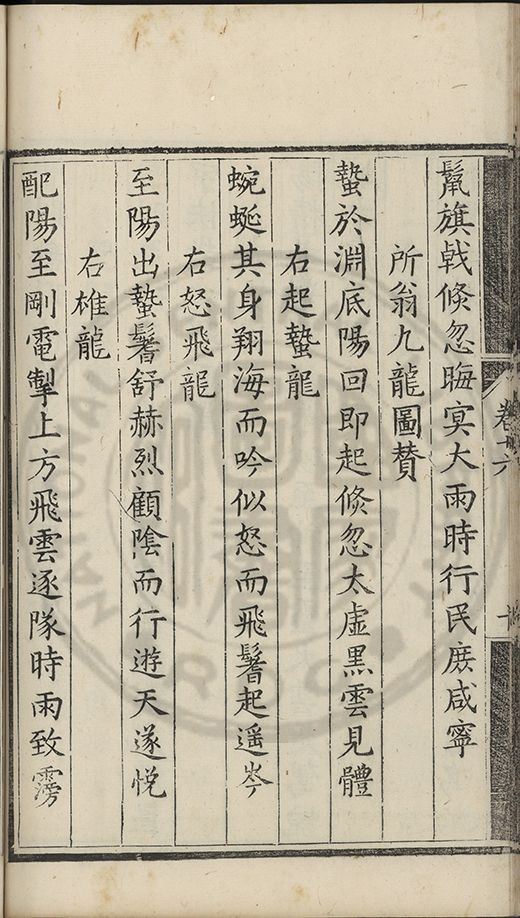 鬣旗戟倐忽晦冥大雨時行民庶咸寧
所翁九龍圖賛
蟄於淵底陽回即起倐忽太虛黑雲見體
右起蟄龍
蜿蜒其身翔海而吟似怒而飛鬐起遥岑
右怒飛龍
至陽出蟄鬐舒赫烈顧隂而行遊天遂悅
右雄龍
配陽至剛電掣上方飛雲逐隊時雨致雱
卷十六
十